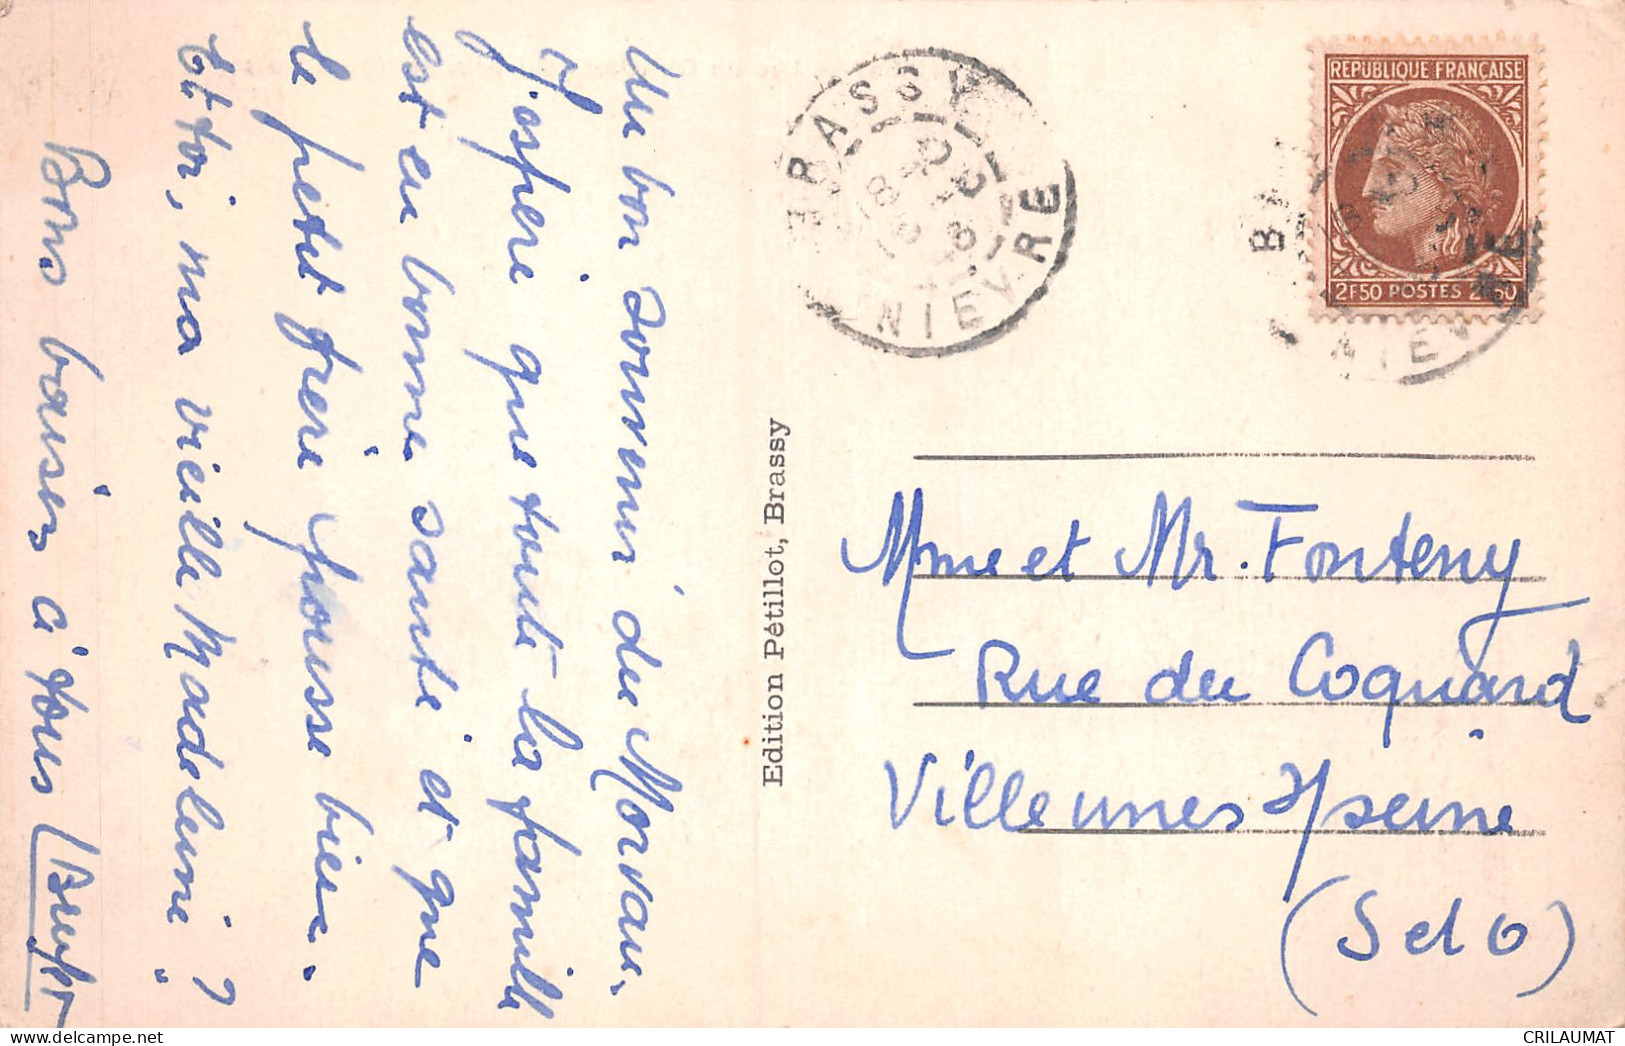 Un bon souvenir du Morvan.
J'espère que toute la famille
est en bonne santé et que
le petit frère pousse bien.
Et toi, ma vieille Madeleine ?
Bons baisers à tous
Edition Pétillot, Brassy
BRASSY
NIEVRE
REPUBLIQUE FRANÇAISE
2F50 POSTES 2F50
NIEVRE
Mme et Mr. Fonteny
Rue du Coquard
Villeunes s/seine
(S et O)
CRILAUMAT